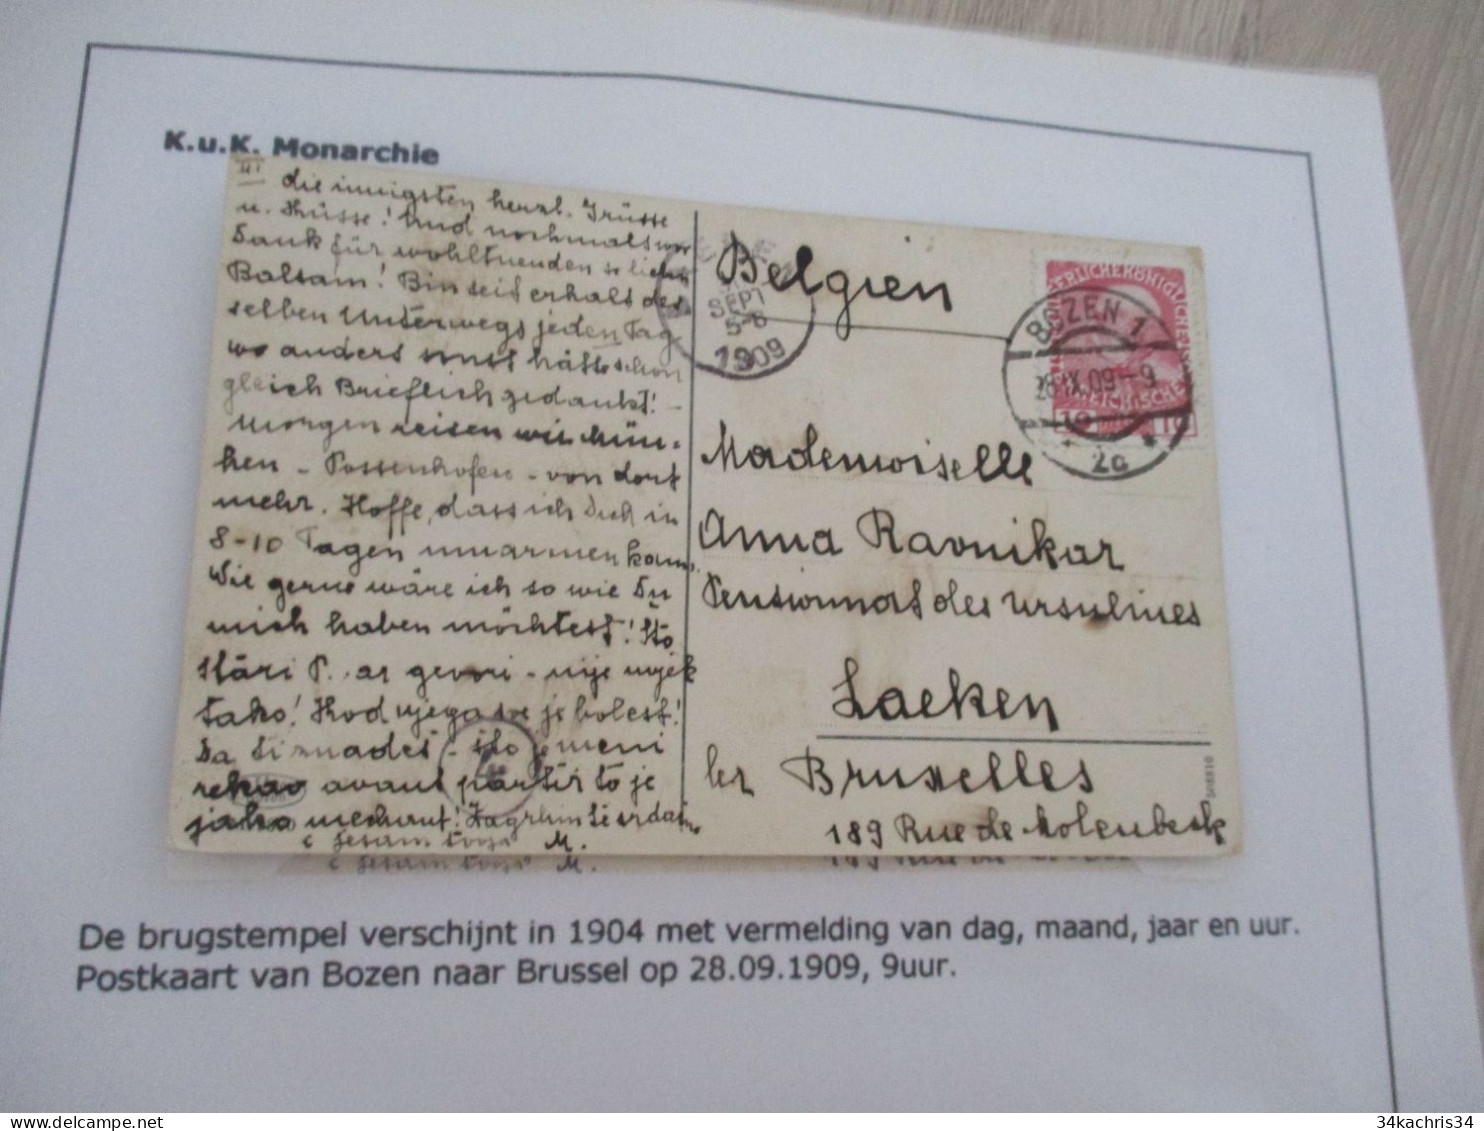 K.u.K. Monarchie
III die innigsten herzl. Grüsse
u. Küsse! Und nochmals
Dank für wohltuenden so lieben
Balsam! Bin seit erhalt des
selben Unterwegs jeden Tag
wo anders sonst hätte schon
gleich Brieflich gedankt! -
Morgen reisen wir Mün-
chen - Possenhofen - von dort
mehr. Hoffe, dass ich Dich in
8-10 Tagen umarmen kann.
Wie gerne wäre ich so wie Du
mich haben möchtest! Što
stari P. ar govori - nije uvjek
tako! Kod njega sve je bolest!
Da ti znadeš - što je meni
rekao avant partir to je
jako
M.
SEPT
5-6
1909
Belgien
KAISERLICHEKÖNIGLICHE
BOZEN 1
28.IX.09-9
* 2c *
10
10
Mademoiselle
Anna Ravnikar
Pensionnat des Ursulines
Laeken
lez Bruxelles
189 Rue de Molenbeek
De brugstempel verschijnt in 1904 met vermelding van dag, maand, jaar en uur.
Postkaart van Bozen naar Brussel op 28.09.1909, 9uur.
34kachris34
www.delcampe.net
34kachris34